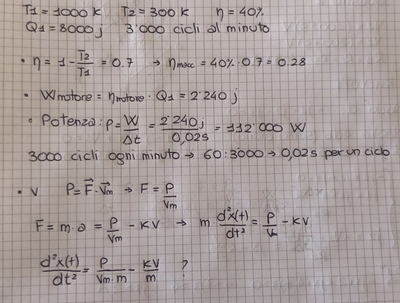 T1 = 1000 K   T2 = 300 K   η = 40%
Q1 = 8000 j   3'000 cicli al minuto
• η = 1 - T2/T1 = 0.7 → ηmacc = 40% · 0.7 = 0.28
• Wmotore = ηmotore · Q1 = 2'240 j
• Potenza: P = W/Δt = 2'240 j/0,02 s = 112'000 W
3000 cicli ogni minuto → 60 : 3'000 → 0,02 s per un ciclo
• v   P = F⃗ · V⃗m → F = P/Vm
F = m · a = P/Vm - KV → m d²x(t)/dt² = P/V - KV
d²x(t)/dt² = P/Vm · m - KV/m   ?